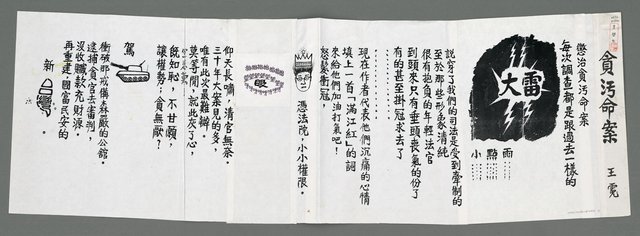 貪污命案
王霓
懲治貪污命案
每次調查都是跟過去一樣的
大雷
雨……
點……
小……
說穿了我們的司法是受到牽制的
至於那些形象清純
很有抱負的年輕法官
到頭來只有垂頭喪氣的份了
有的甚至掛冠求去了
…………
現在作者代表他們沉痛的心情
填上一首「滿江紅」的詞
來給他們加油打氣吧!
怒髮衝冠
憑法院,小小權限。
仰天長嘯,清官無奈。
三十年大案見的多,
唯有此次最難辦。
莫等閒,就此灰了心,
既知恥,不甘願,
讓權勢;貪無厭?
駕
衝破那戒備森嚴的公館。
逮捕貪官去審判,
沒收贓款充財源。
再重建;國富民安的
新